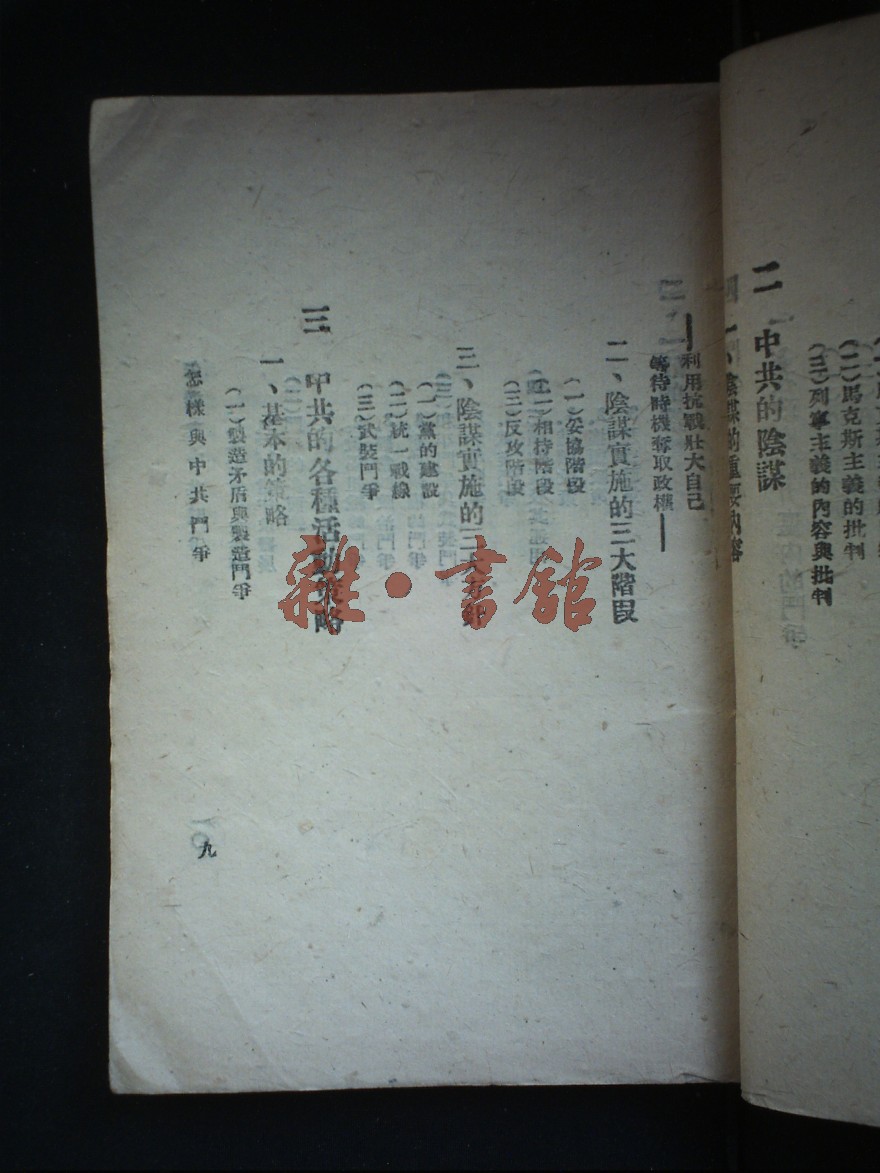 (二)馬克斯主義的批判
(三)列寧主義的內容與批判
二 中共的陰謀
一、陰謀的重要內容
利用抗戰壯大自己
等待時機奪取政權——
二、陰謀實施的三大階段
(一)妥協階段
(二)相持階段
(三)反攻階段
三、陰謀實施的三大
(一)黨的建設
(二)統一戰線
(三)武裝鬥爭
三 中共的各種活動策略
一、基本的策略
(一)製造矛盾與製造鬥爭
怎樣與中共鬥爭
九
雜·書館